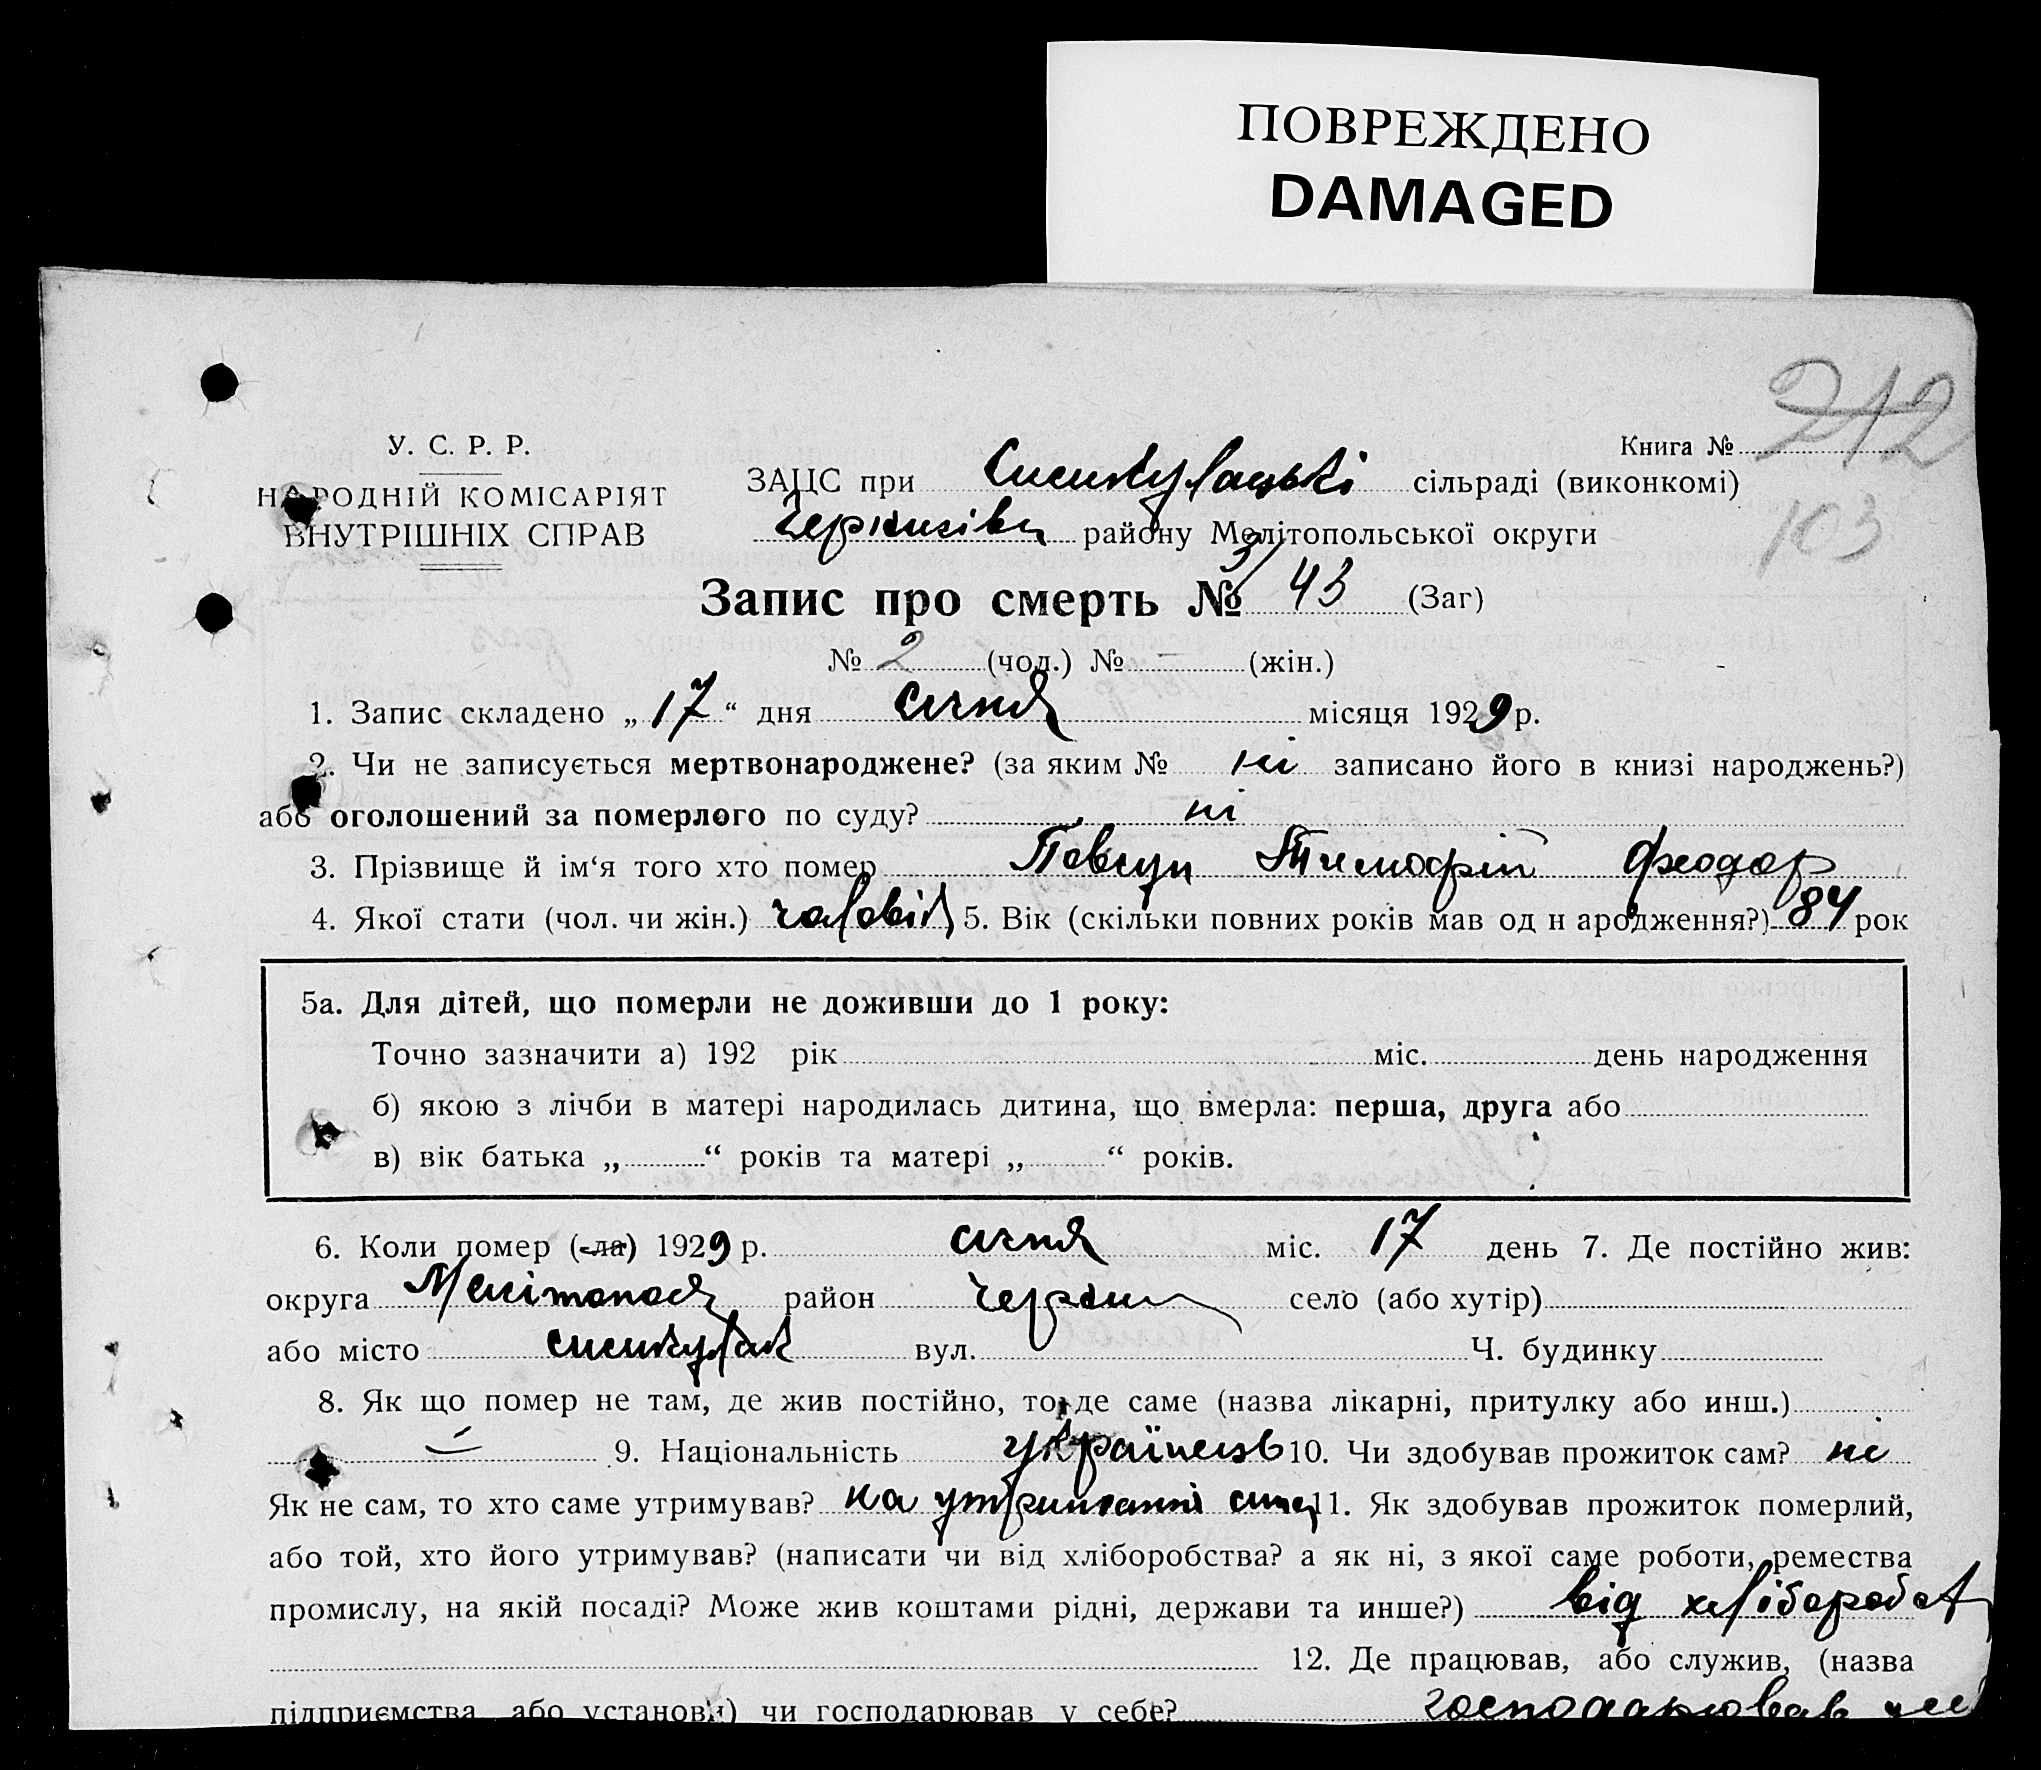 ПОВРЕЖДЕНО
DAMAGED
212
Книга №
103
У. С. Р. Р.
НАРОДНІЙ КОМІСАРІЯТ
ВНУТРІШНІХ СПРАВ
ЗАЦС при сільраді (виконкомі)
району Мелітопольської округи
Запис про смерть № 3/43 (Заг)
№ 2 (чол.) № — (жін.)
1. Запис складено „17“ дня січня місяця 1929 р.
2. Чи не записується мертвонароджене? (за яким № ні записано його в книзі народжень?)
або оголошений за померлого по суду? ні
3. Прізвище й ім‘я того хто помер Тимофій Феодор
4. Якої стати (чол. чи жін.) чоловік 5. Вік (скільки повних років мав од н ародження?) 84 рок
5а. Для дітей, що померли не доживши до 1 року:
Точно зазначити а) 192 рік міс. день народження
б) якою з лічби в матері народилась дитина, що вмерла: перша, друга або
в) вік батька „ “ років та матері „ “ років.
6. Коли помер (-ла) 1929 р. січня міс. 17 день 7. Де постійно жив:
округа район село (або хутір)
або місто вул. Ч. будинку
8. Як що помер не там, де жив постійно, то де саме (назва лікарні, притулку або инш.)
— 9. Національність українець 10. Чи здобував прожиток сам? ні
Як не сам, то хто саме утримував? на утриманні сина 11. Як здобував прожиток померлий,
або той, хто його утримував? (написати чи від хліборобства? а як ні, з якої саме роботи, ремества
промислу, на якій посаді? Може жив коштами рідні, держави та инше?) від хліборобст
12. Де працював, або служив, (назва
підприємства або установи) чи господарював у себе? господарював у се